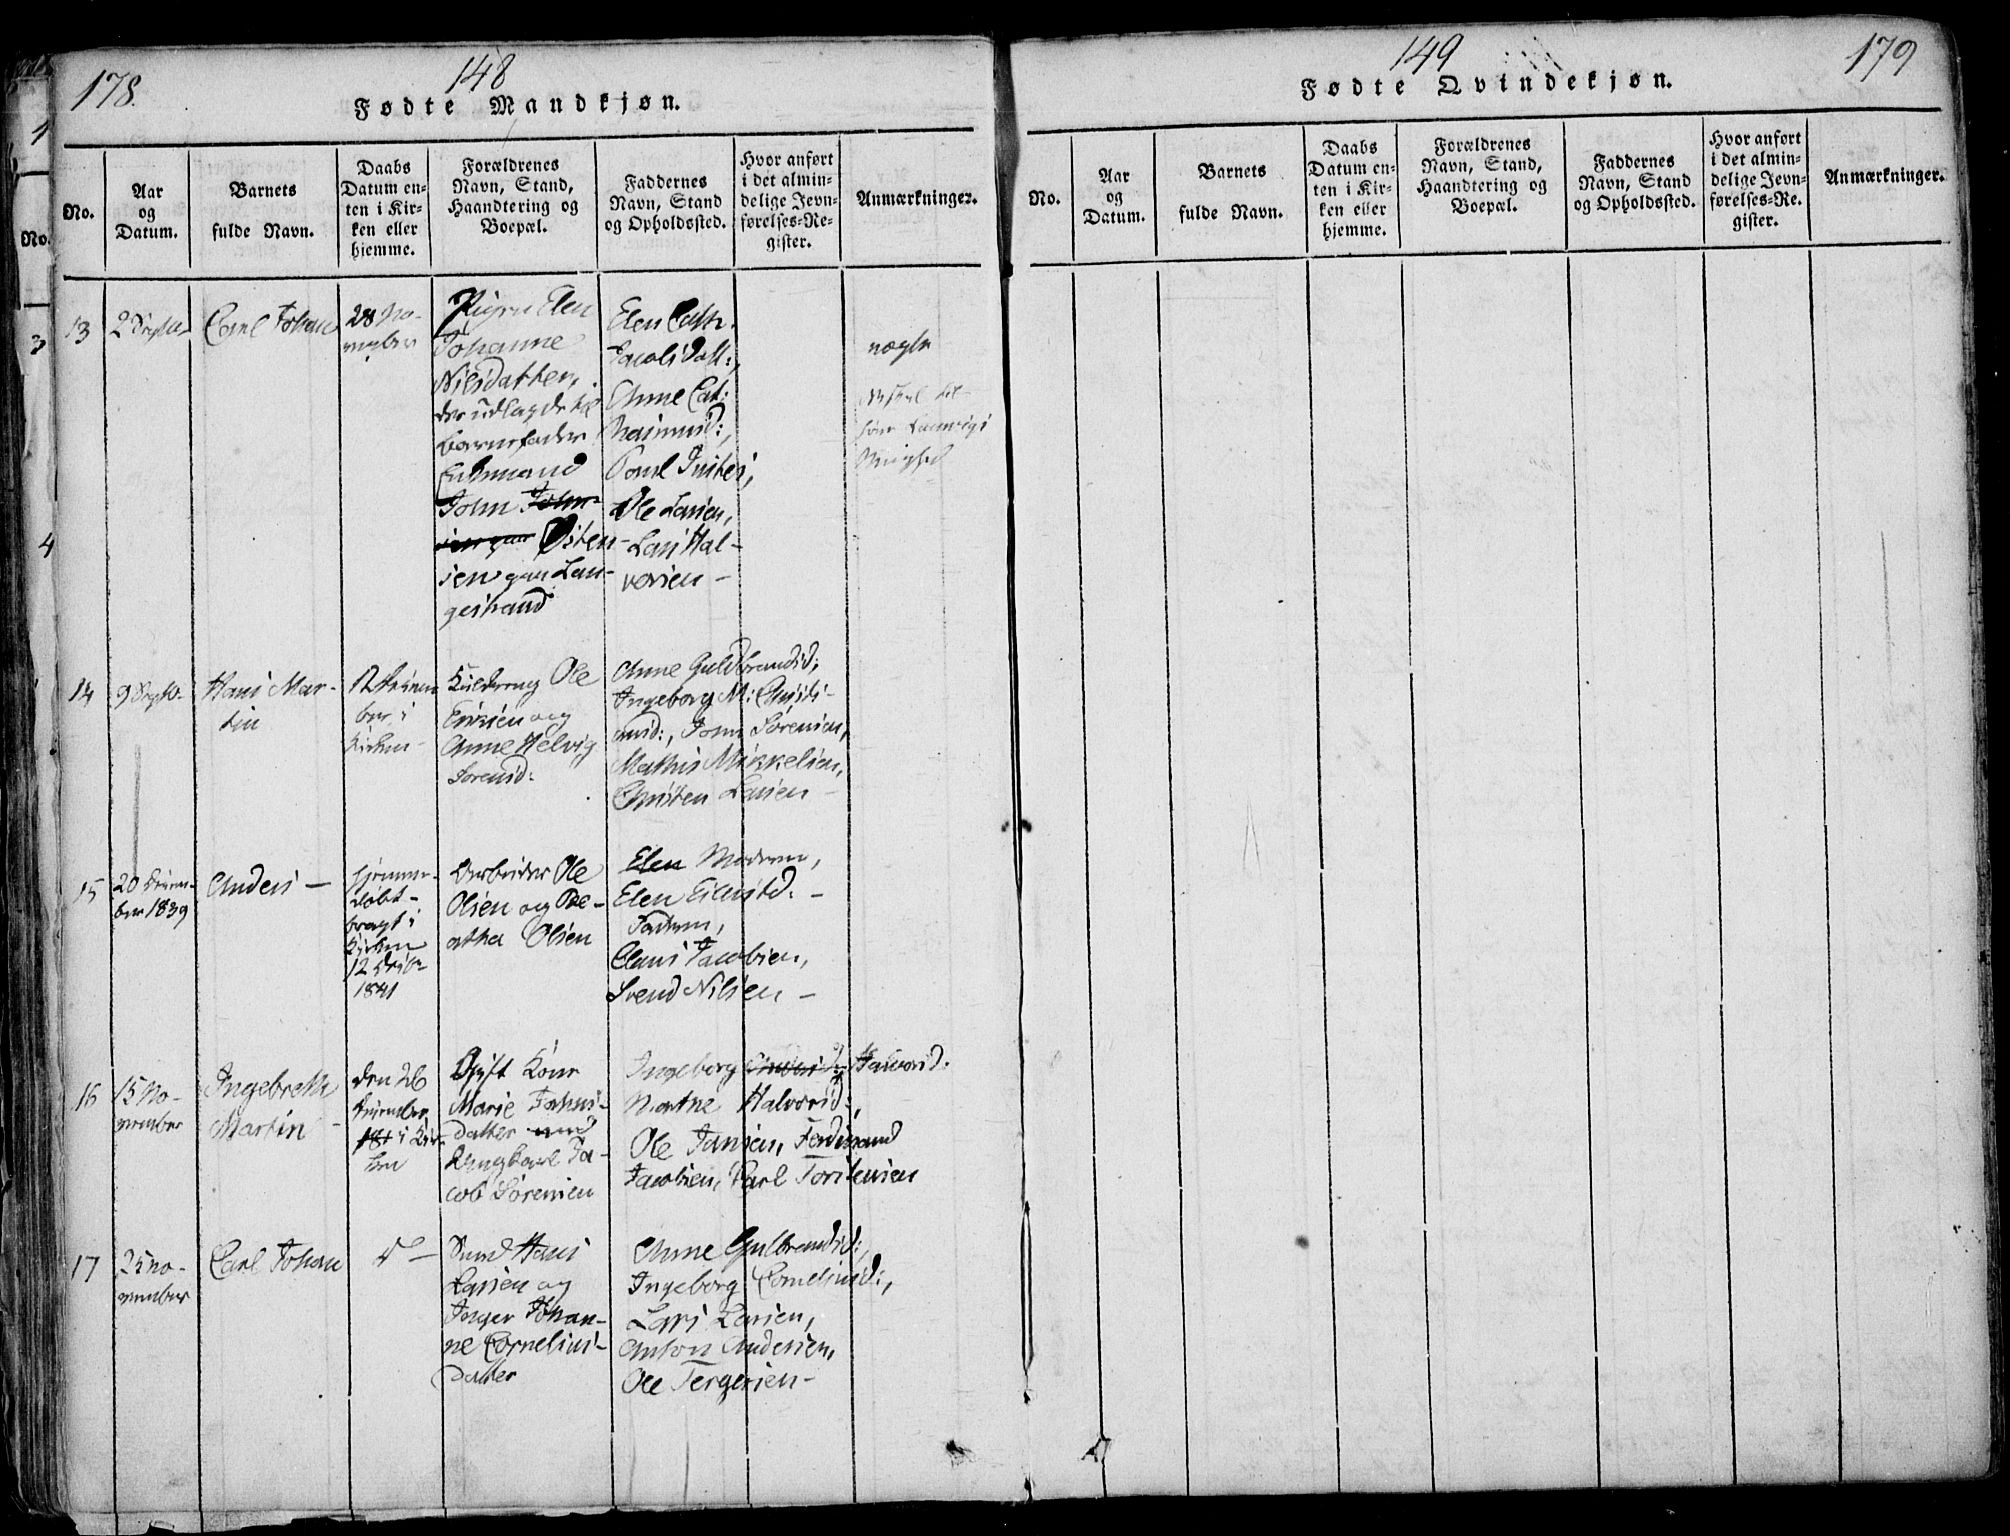 178.
148
Fødte Mandkjøn.
No.
Aar
og
Datum.
Barnets
fulde Navn.
Daabs
Datum en-
ten i Kir-
ken eller
hjemme.
Forældrenes
Navn, Stand,
Haandtering og
Boepæl.
Faddernes
Navn, Stand
og Opholdssted.
Hvor anført
i det almin-
delige Jevn-
førelses-Re-
gister.
Anmærkninger.
13
2 Septbr
Carl Johan
28 No-
vember
Pigen Elen
Johanne
Nilsdatter,
der udlagde til
Barnefader
Enkmand
John John-
sen paa Østen-
sen paa Lan-
gestrand
Elen Cath.
Jacobsdatt:,
Anne Cat:
Rasmusd:,
Ole Larsen,
Lars Hal-
vorsen –
14
9 Septbr.
Hans Mar-
tin
12 Decem
ber i
Kirken –
Ole
Ericsen og
Anne Helvig
Sørensd:
Anne Guldbrandsd:
Ingeborg M: Christi-
ansd:, John Sørensen,
Mathis Mikkelsen,
Christen Larsen –
15
20 Decem-
ber 1839
Anders –
Hjemme-
døbt –
bragt i
Kirken
12 Decbr
1841
Arbeider Ole
Olsen og Be-
athe Olsen
Elen Moderen,
Elen Eilertsd. –
Faderen,
Claus Jacobsen,
Svend Nilsen –
16
15 No-
vember
Ingebreth
Martin –
den 26
December
181 i Kir-
ken
Ugift Kone
Marie Johns-
datter med
Ungkarl Ja-
cob Sørensen
Ingeborg Halvorsd.
Marthe Halvorsd:,
Ole Jansen, Ferdinand
Jacobsen, Carl Torstensen
17
25 No-
vember
Carl Johan
do –
Smed Hans
Larsen og
Inger Johan-
ne Cornelius-
datter
Anne Gulbrandsd:,
Ingeborg Corneliusd:,
Lars Larsen,
Anton Andersen,
Ole Tergersen –
149
179
Fødte Qvindekjøn.
No.
Aar
og
Datum.
Barnets
fulde Navn.
Daabs
Datum en-
ten i Kir-
ken eller
hjemme.
Forældrenes
Navn, Stand,
Haandtering og
Boepæl.
Faddernes
Navn, Stand
og Opholdssted.
Hvor anført
i det almin-
delige Jevn-
førelses-Re-
gister.
Anmærkninger.